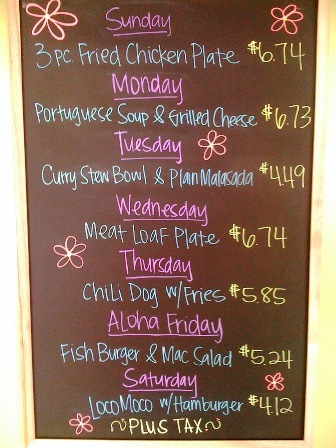 Sunday
3 pc. Fried Chicken Plate $6.74
Monday
Portuguese Soup & Grilled Cheese $6.73
Tuesday
Curry Stew Bowl & Plain Malasada $4.49
Wednesday
Meat Loaf Plate $6.74
Thursday
Chili Dog w/Fries $5.85
Aloha Friday
Fish Burger & Mac Salad $5.24
Saturday
Loco Moco w/Hamburger $4.12
~PLUS TAX~